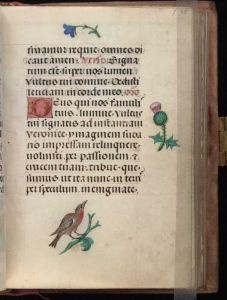 fruamur requie. omnes di
cant amen. Signa
tum est super nos lumen
vultus tui domine. Dedisti
leticiam in corde meo.
Deus qui nos famul
tuis. lumine vultus
tui signatis ad instantiam
veronice ymaginem suda
rio impressam relinquere
voluisti. per passionem. et
crucem tuam. tribue que
sumus ut ita nunc in terris
per speculum. in enigmate.